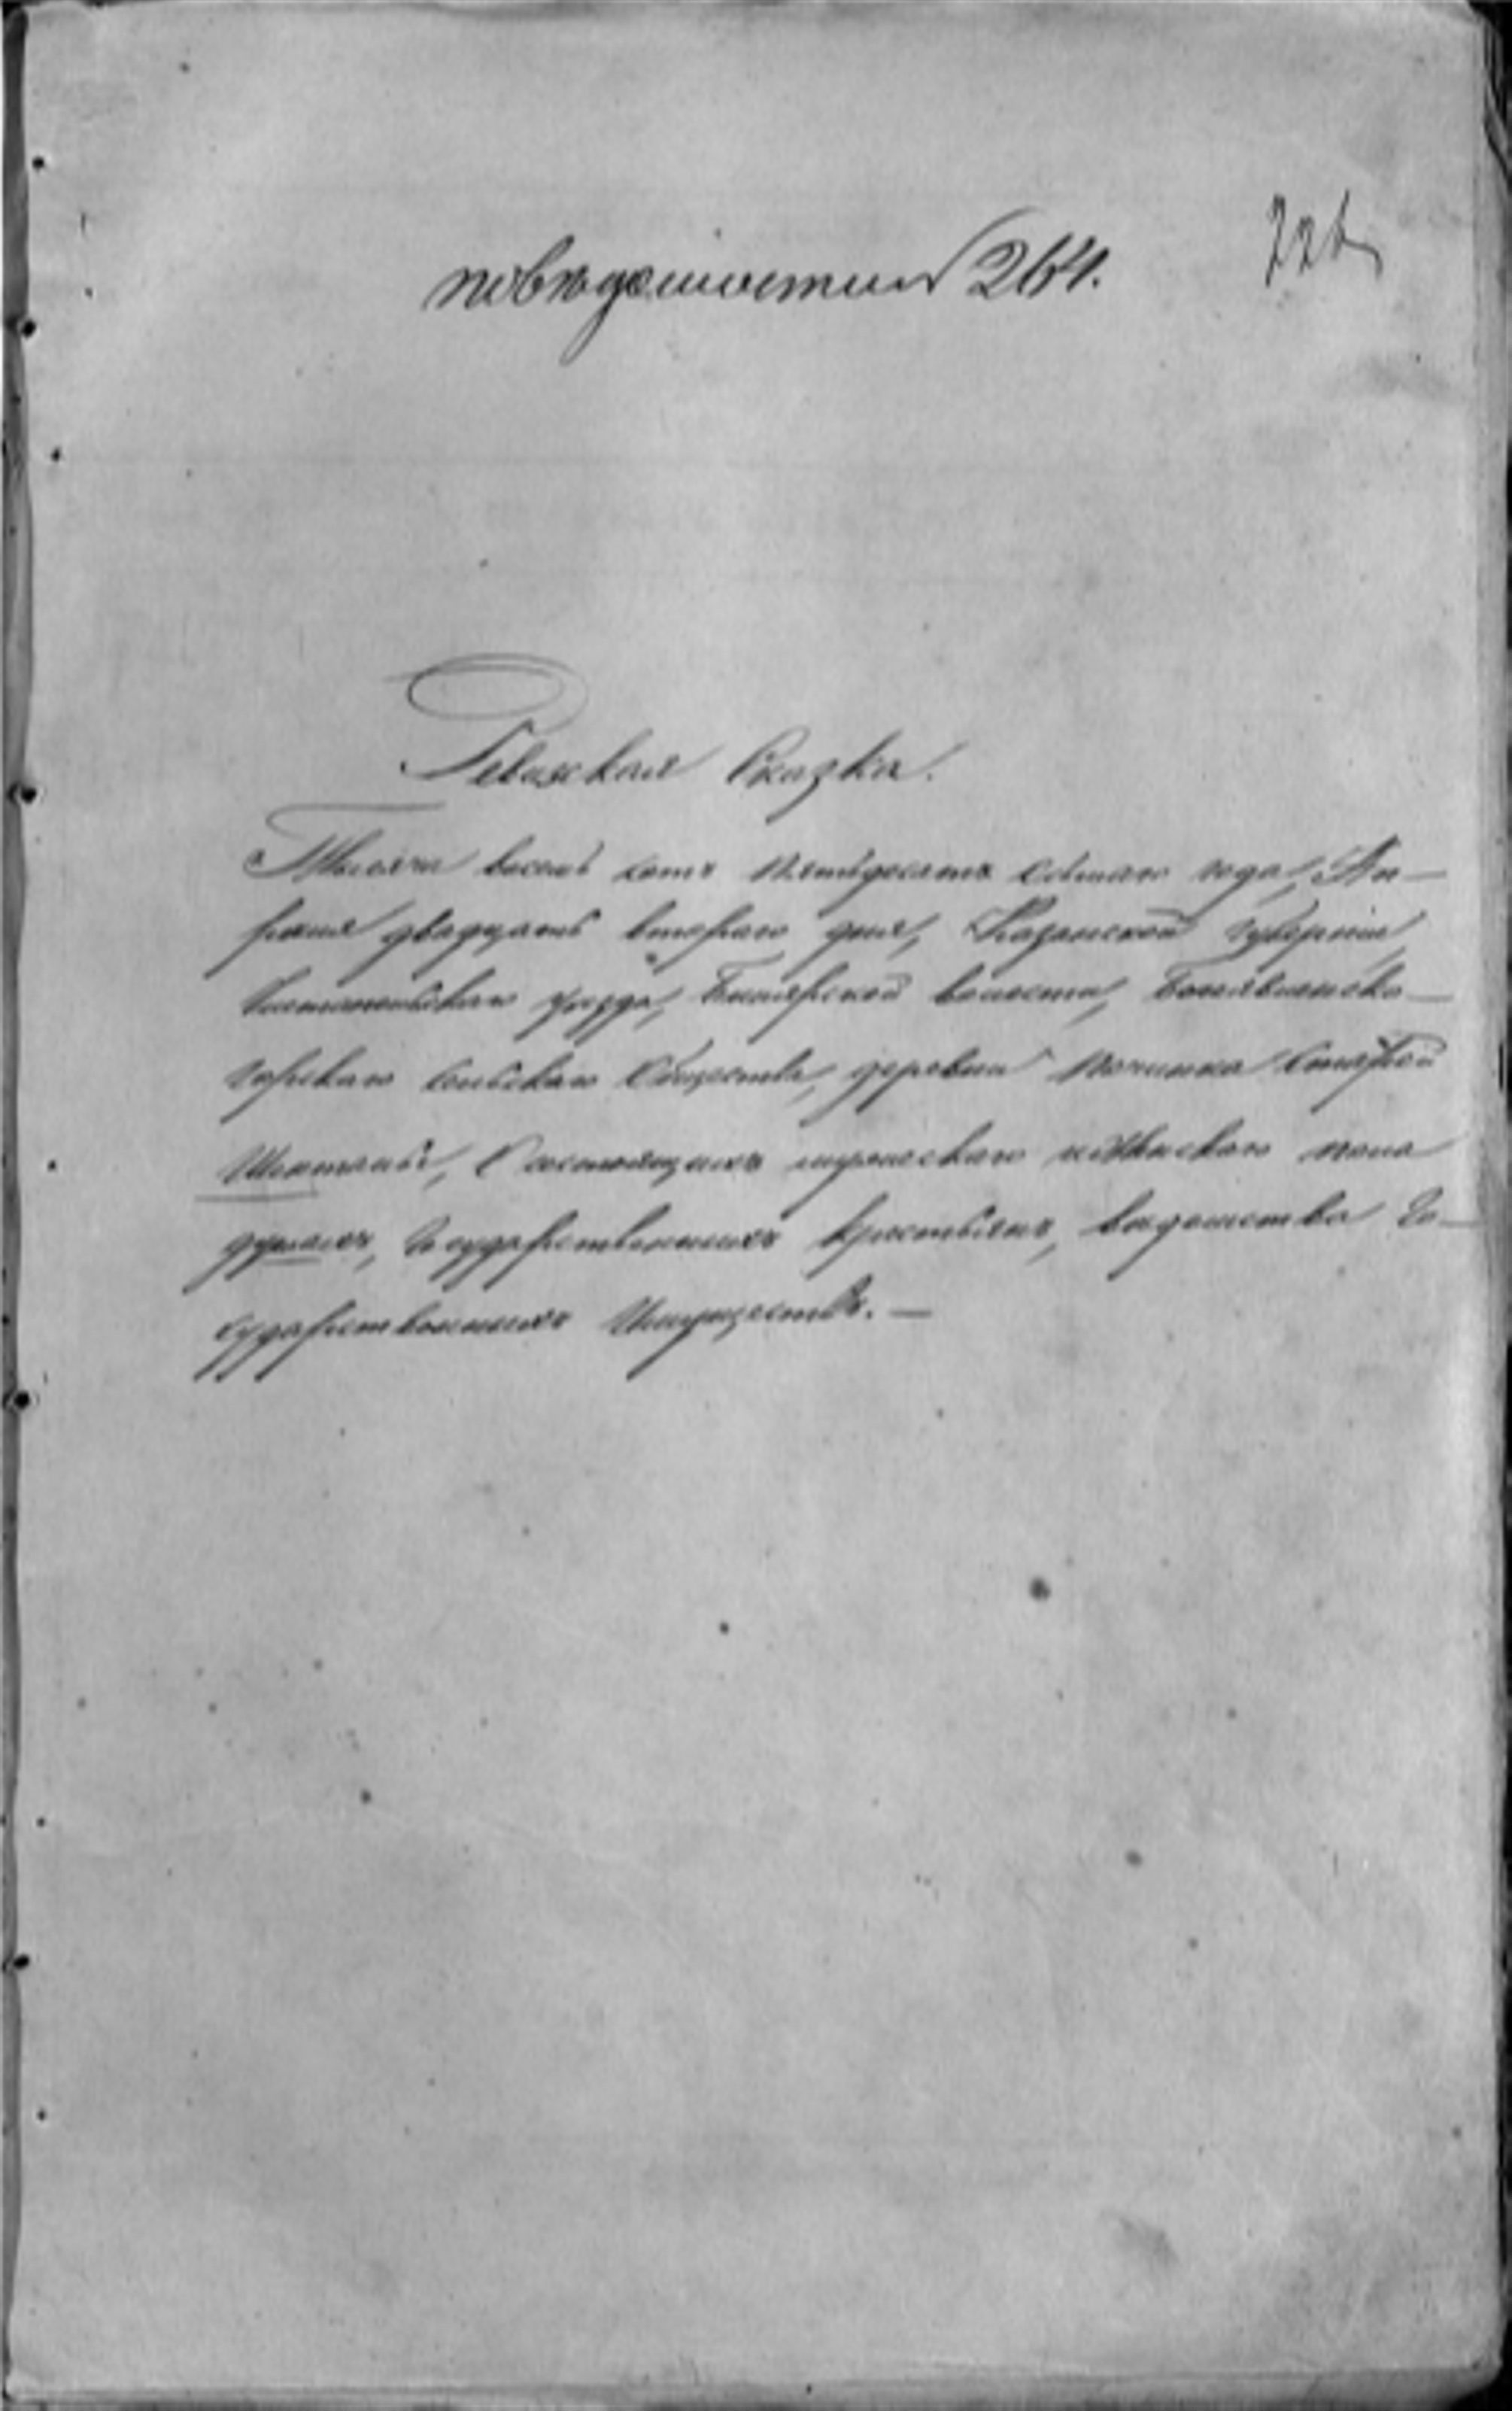 226
по ведомости 264.
Ревизская Сказка.
Тысяча восемь сотъ пятьдесятъ седьмаго года, Ап-
рѣля двадцать втораго дня, Казанской губерніи
Чистопольскаго уѣзда, Билярской волости,
горскаго сельскаго Общества, деревни Починка Старой
О состоящихъ мужескаго и женскаго пола
душахъ, Государственныхъ крестьянъ, вѣдомства Го-
сударственныхъ Имуществъ. —